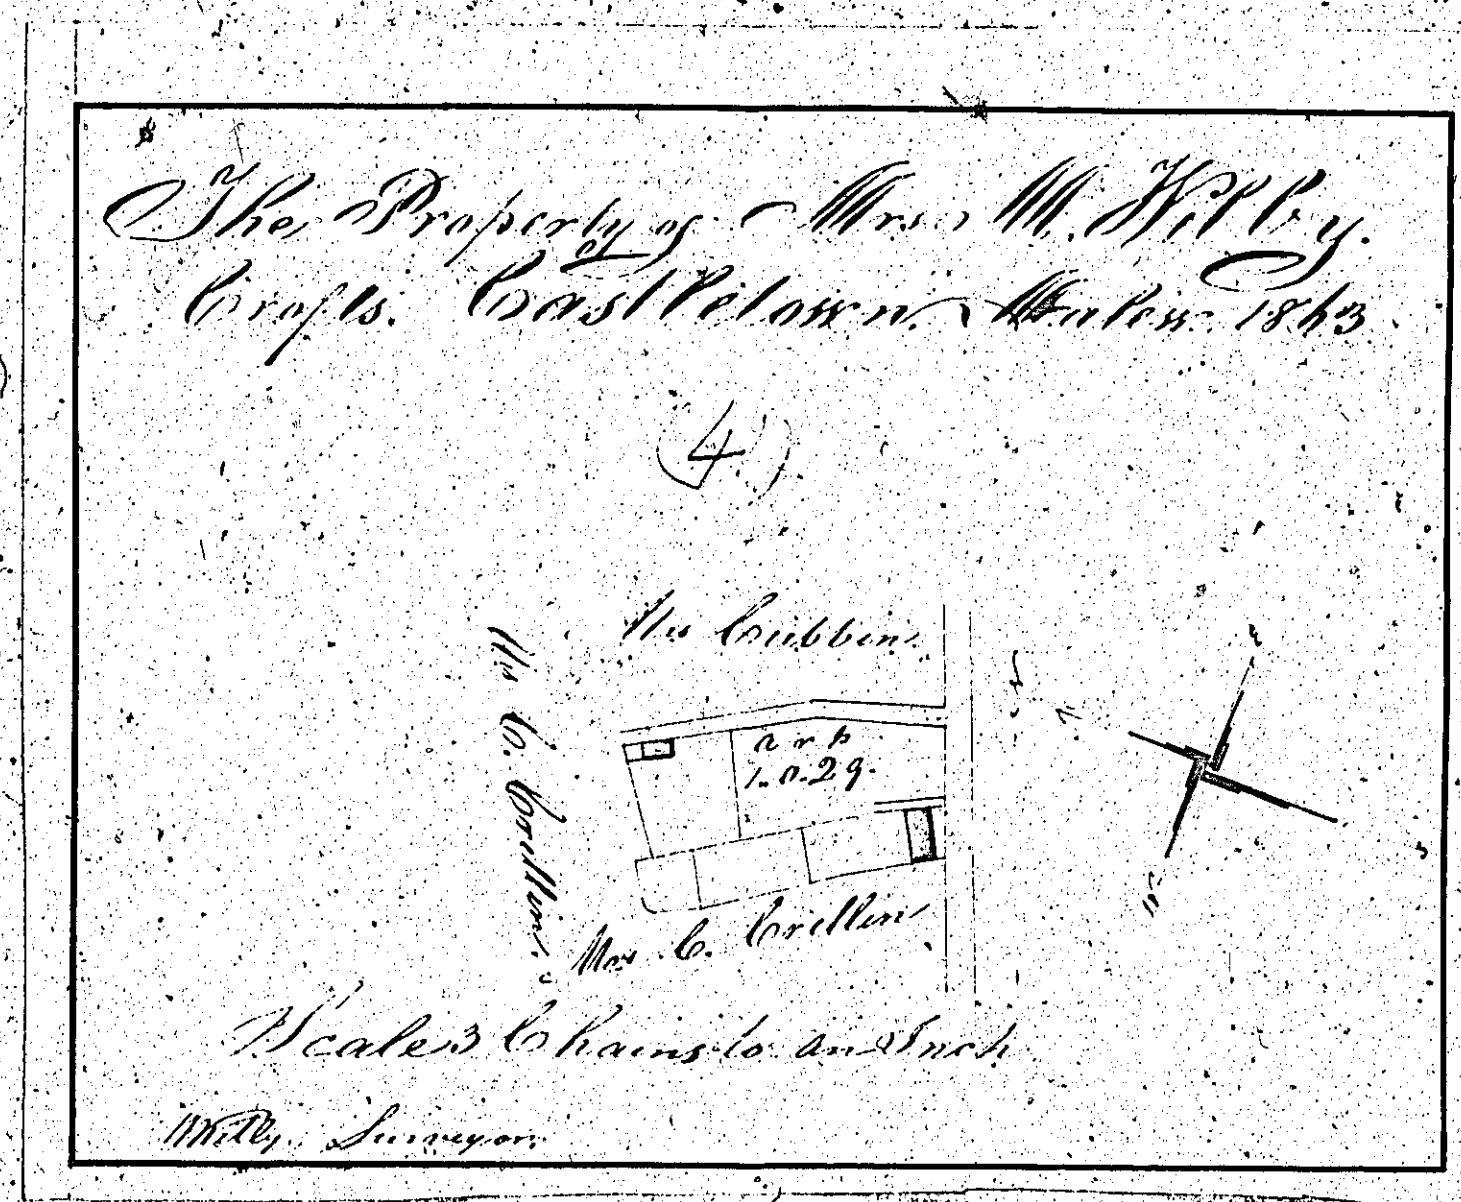 The Property of Mrs. M. Kelly.
of
Crofts. Castletown. Malew. 1863
(4)
Mrs Cubbon.
Mrs C. Crellin.
a r p
1. 0. 29.
Mrs C. Crellin
Scale 3 Chains to an Inch
Surveyor.